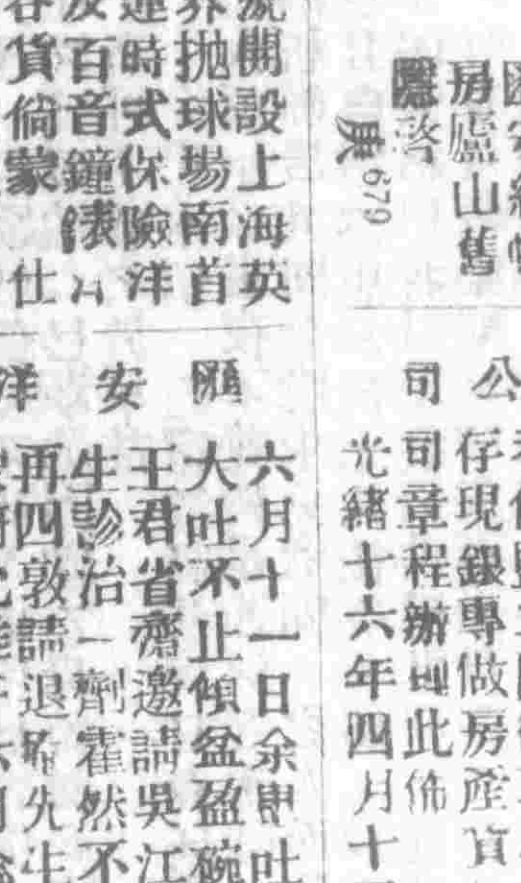 房廬山舊
啓
庚 679
開設上海英
界拋球場南首
運時式保險洋
及百音鐘錶
各貨倘蒙 仕
公
存現銀專做房產
司
司章程辦 此佈
光緒十六年四月十
六月十一日余 吐
大吐不止傾盆盈碗
安
王君省齋邀請吳江
生診治一劑霍然不
洋
再四敦請退 先生